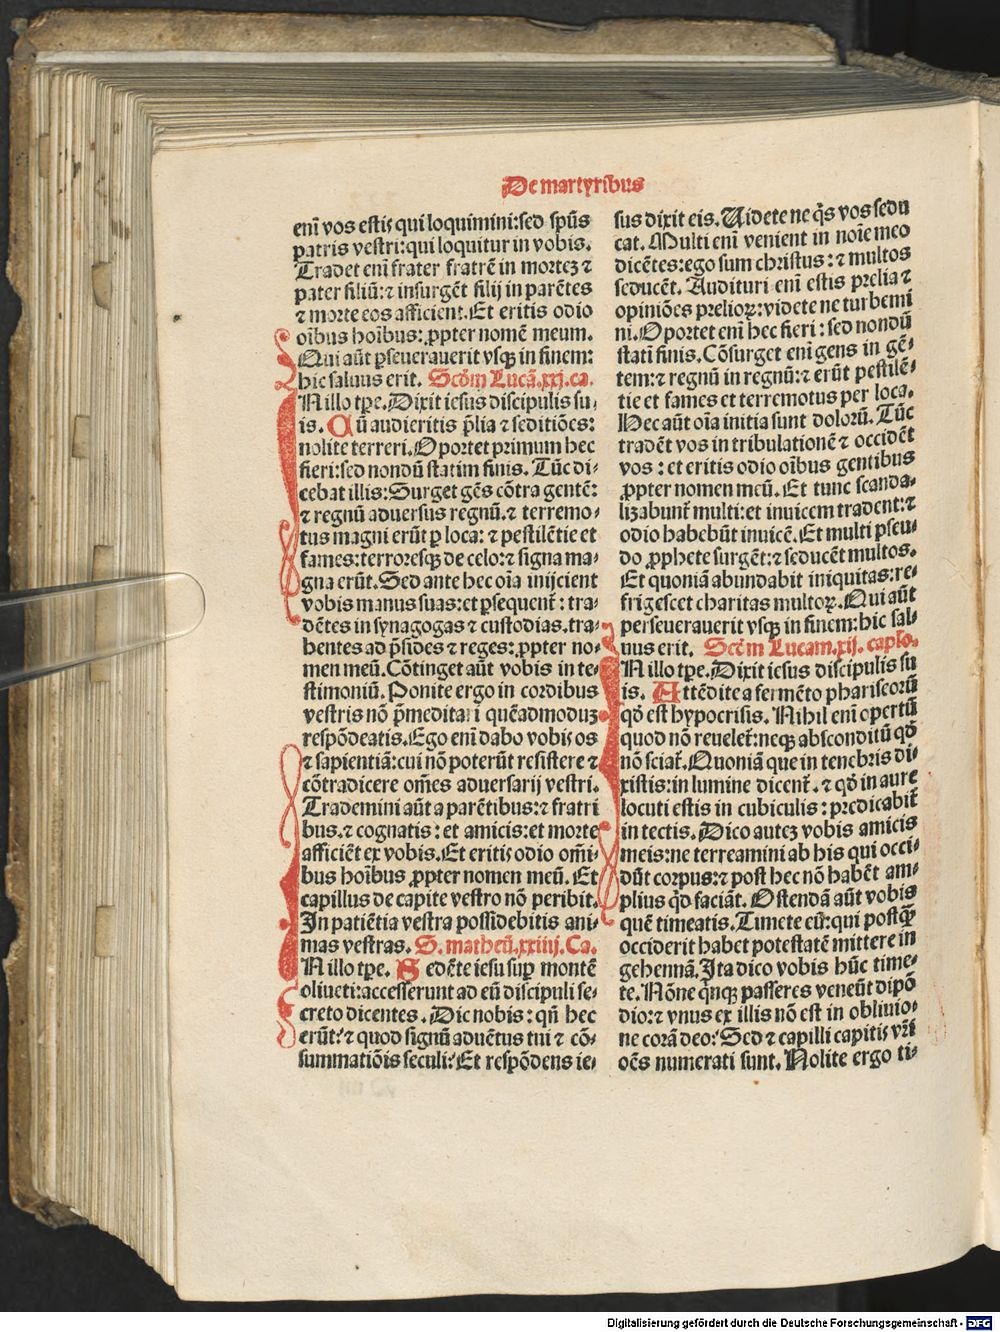 De martyribus
enī vos estis qui loquimini:sed spūs
patris vestri:qui loquitur in vobis.
Tradet enī frater fratrē in mortez ⁊
pater filiū:⁊ insurgēt filij in parētes
⁊ morte eos afficient.Et eritis odio
oībus hoībus:ꝓpter nomē meum.
Qui aūt ꝑseuerauerit vsqꝫ in finem:
hic saluus erit. Scd̄m Lucā.xxj.ca.
IN illo tꝑe.Dixit iesus discipulis su/
is. Cū audieritis p̄lia ⁊ seditiōes:
nolite terreri.Oportet primum hec
fieri:sed nondū statim finis. Tūc di/
cebat illis:Surget gēs cōtra gentē:
⁊ regnū aduersus regnū.⁊ terremo/
tus magni erūt ꝑ loca:⁊ pestilētie et
fames:terroresqꝫ de celo:⁊ signa ma/
gna erūt.Sed ante hec oīa inijcient
vobis manus suas:et ꝑsequent̄:tra/
dētes in synagogas ⁊ custodias.tra/
hentes ad p̄sides ⁊ reges:ꝓpter no/
men meū.Cōtinget aūt vobis in te/
stimoniū.Ponite ergo in cordibus
vestris nō p̄meditari quēadmoduz
respōdeatis.Ego enī dabo vobis os
⁊ sapientiā:cui nō poterūt resistere ⁊
cōtradicere om̄es aduersarij vestri.
Trademini aūt a parētibus:⁊ fratri
bus.⁊ cognatis:et amicis:et morte
afficiēt ex vobis.Et eritis odio om̄i/
bus hoībus ꝓpter nomen meū.Et
capillus de capite vestro nō peribit.
In patiētia vestra possidebitis ani/
mas vestras. S.matheū.xxiiij.Ca.
IN illo tꝑe. Sedēte iesu suꝑ montē
oliueti:accesserunt ad eū discipuli se/
creto dicentes.Dic nobis:qn̄ hec
erūt:⁊ quod signū aduētus tui ⁊ cō/
summatiōis seculi:Et respōdens ie/
sus dixit eis.Uidete ne q̄s vos sedu
cat.Multi enī venient in noīe meo
dicētes:ego sum christus:⁊ multos
seducēt. Audituri enī estis prelia ⁊
opiniōes prelioꝝ:videte ne turbemī
ni.Oportet enī hec fieri:sed nondū
statī finis.Cōsurget enī gens in gē/
tem:⁊ regnū in regnū:⁊ erūt pestilē/
tie et fames et terremotus per loca.
Hec aūt oīa initia sunt dolorū.Tūc
tradēt vos in tribulationē ⁊ occidēt
vos:et eritis odio oībus gentibus
ꝓpter nomen meū.Et tunc scanda/
lizabunt̄ multi:et inuicem tradent:⁊
odio habebūt inuicē.Et multi pseu/
do ꝓphete surgēt:⁊ seducēt multos.
Et quoniā abundabit iniquitas:re/
frigescet charitas multoꝝ.Qui aūt
perseuerauerit vsqꝫ in finem:hic sal/
uus erit. Scd̄m Lucam.xij.caplo.
IN illo tꝑe.Dixit iesus discipulis su
is. Attēdite a fermēto phariseorū
qd̄ est hypocrisis.Nihil enī opertū
quod nō reuelet̄:neqꝫ absconditū qd̄
nō sciat̄.Quoniā que in tenebris di/
xistis:in lumine dicent̄.⁊ qd̄ in aure
locuti estis in cubiculis:predicabit̄
in tectis.Dico autez vobis amicis
meis:ne terreamini ab his qui occi/
dūt corpus:⁊ post hec nō habēt am/
plius qd̄ faciāt.Ostendā aūt vobis
quē timeatis.Timete eū:qui postqꝫ̄
occiderit habet potestatē mittere in
gehennā.Ita dico vobis hūc time/
te.Nōne qnqꝫ passeres veneūt dipō
dio:⁊ vnus ex illis nō est in obliuio/
ne corā deo:Sed ⁊ capilli capitis vr̄i
oēs numerati sunt.Nolite ergo ti/
Digitalisierung gefördert durch die Deutsche Forschungsgemeinschaft - DFG